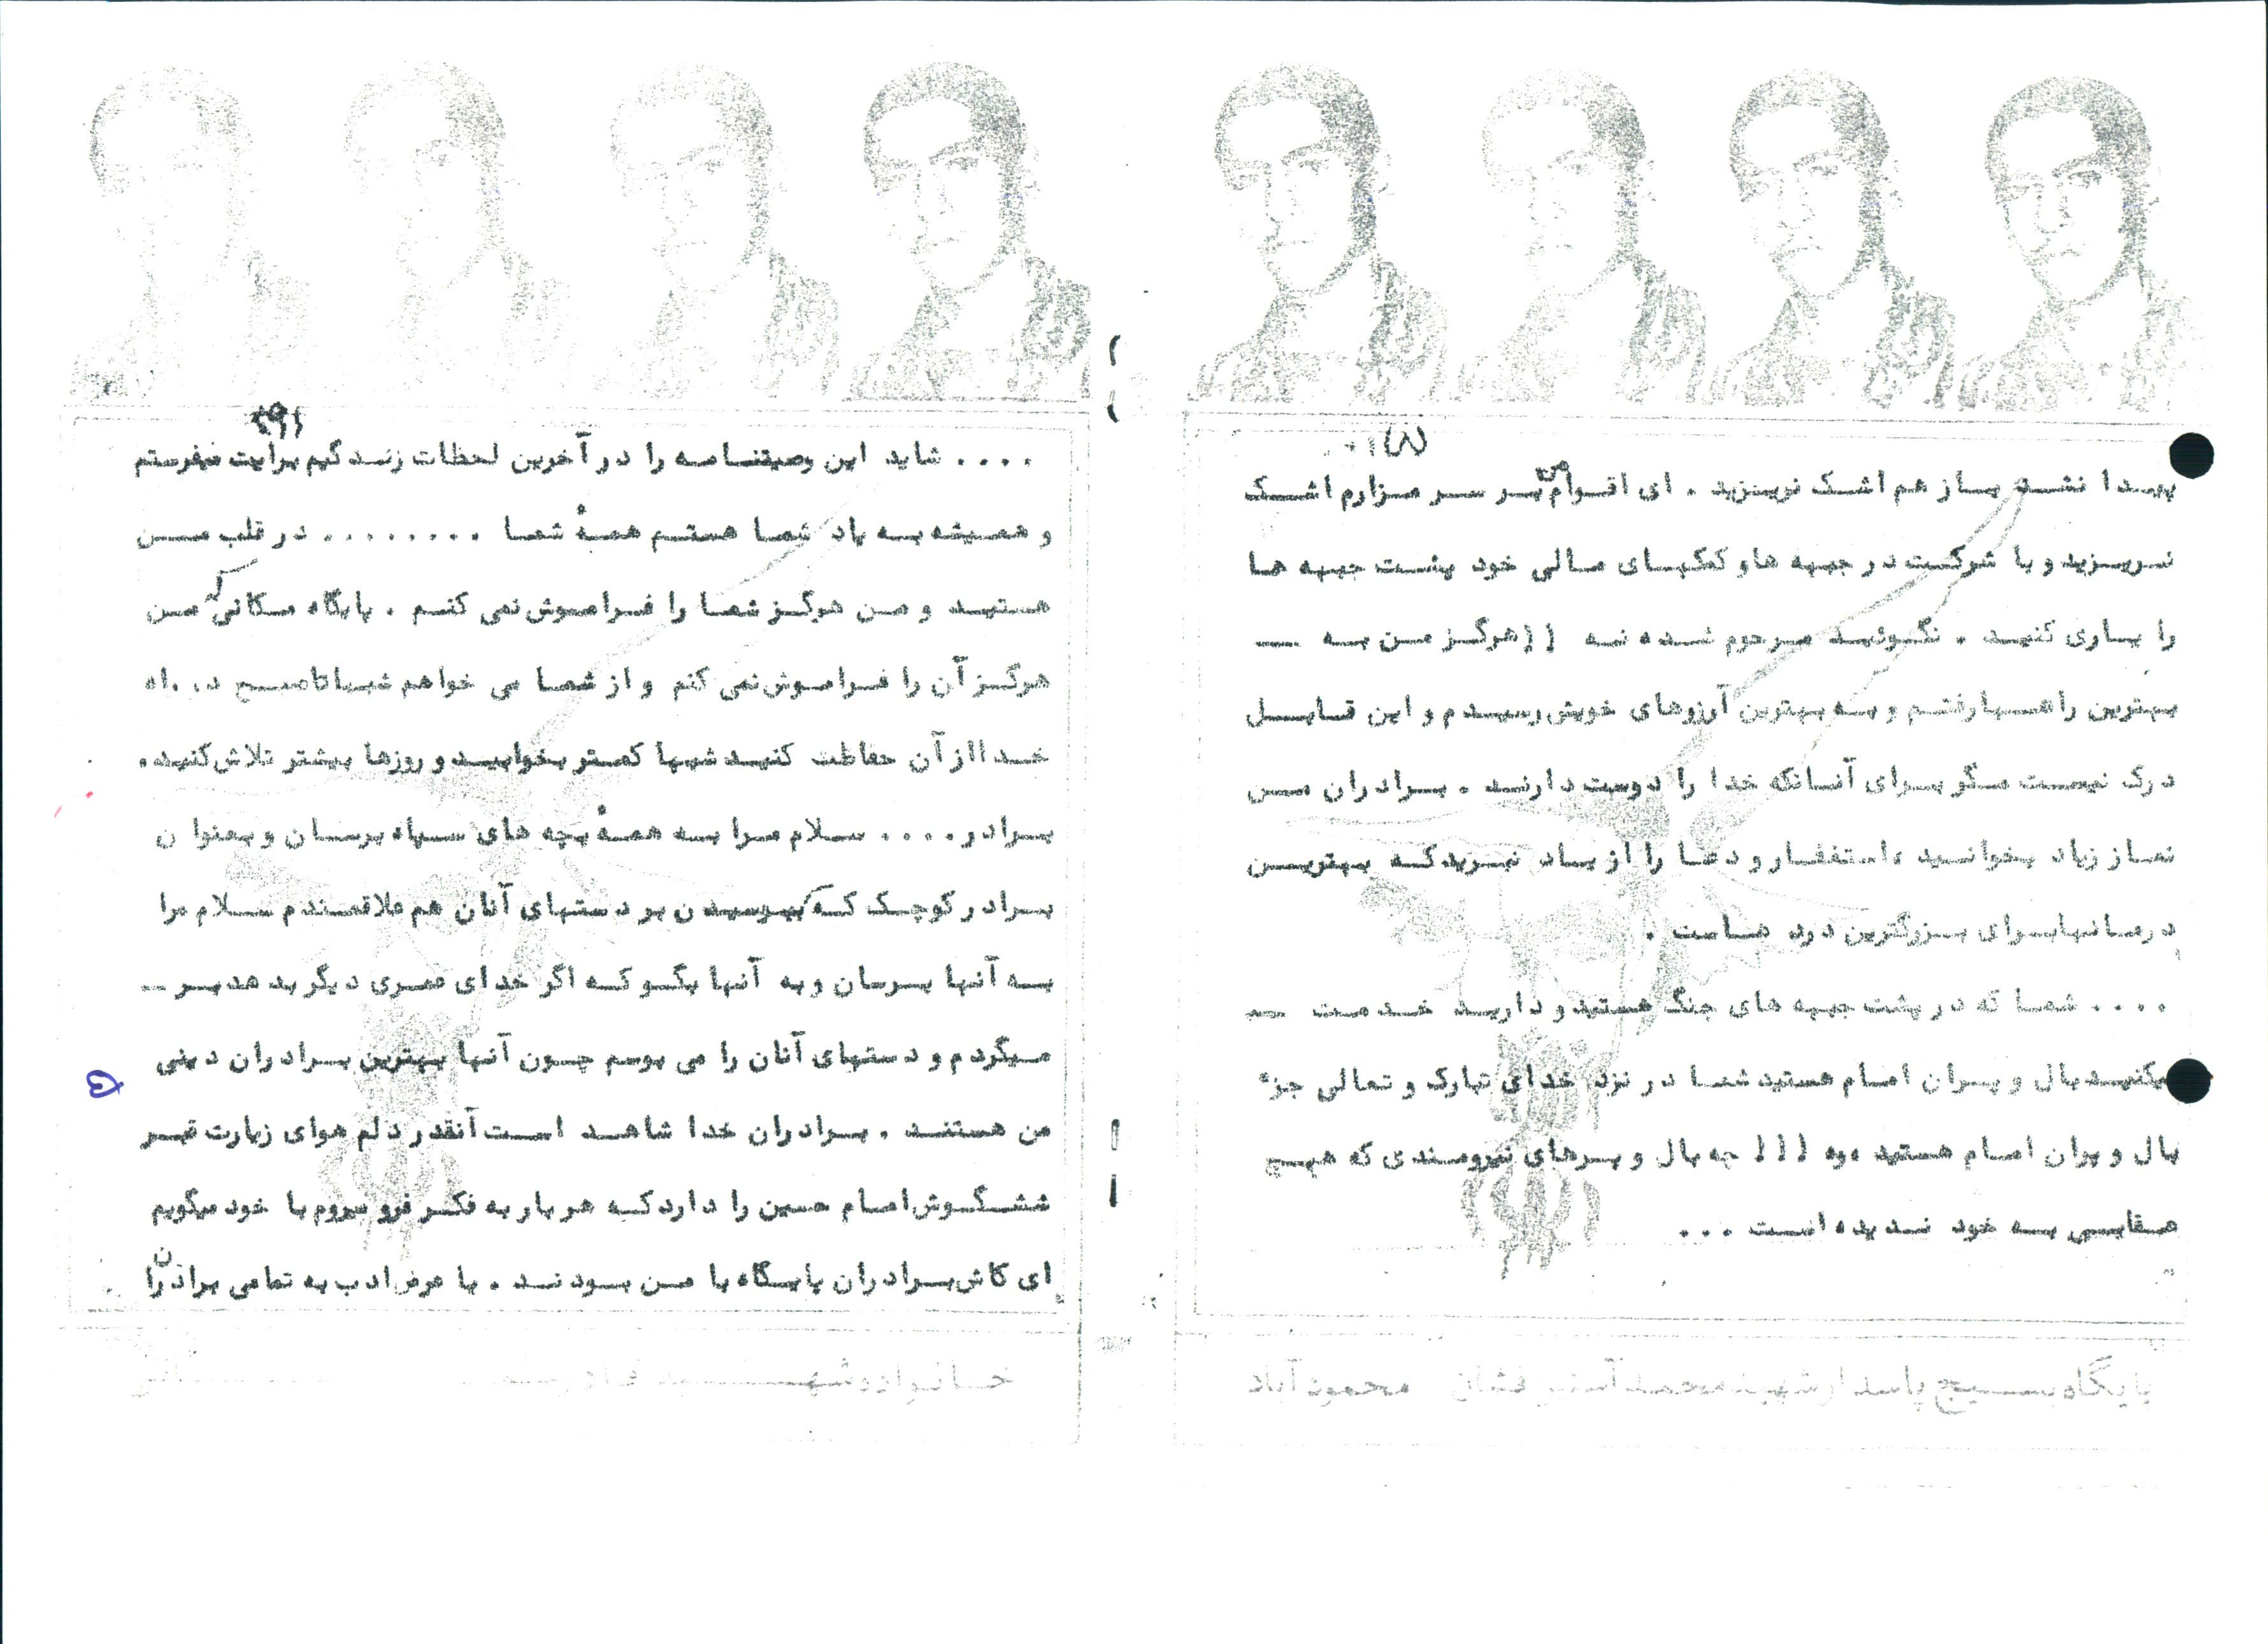 (۸)
پیدا نشد باز هم اشک نریزید . ای اقوام من بر سر مزارم اشک
نریزید و با شرکت در جبهه ها و کمکهای مالی خود پشت جبهه ها
را یاری کنید . نگوئید مرحوم شده نه (( هرگز من به —
بهترین راهها رفتم و به بهترین آرزوهای خویش رسیدم و این قابل
درک نیست مگر برای آنانکه خدا را دوست دارند . برادران من
نماز زیاد بخوانید ،استغفار و دعا را از یاد نبرید که بهترین
درمانها برای بزرگترین درد هاست .
.... شما که در پشت جبهه های جنگ هستید و دارید خدمت —
میکنید بال و پران امام هستید شما در نزد خدای تبارک و تعالی جزء
بال و پران امام هستید ، وه !!! چه بال و پرهای نیرومندی که هیچ
عقابی به خود ندیده است ...
پایگاه بسیج پاسدار شهید محمد فشان محمودآباد
(۹)
.... شاید این وصیتنامه را در آخرین لحظات زندگیم برایت میفرستم
و همیشه به یاد شما هستم همهٔ شما ........ در قلب من
هستید و من هرگز شما را فراموش نمی کنم . پایگاه مکانی که من
هرگز آن را فراموش نمی کنم و از شما می خواهم شبها تا صبح در راه
خدا از آن حفاظت کنید شبها کمتر بخوابید و روزها بیشتر تلاش کنید .
برادر .... سلام مرا به همهٔ بچه های سپاه برسان و بعنوان
برادر کوچک که ببوسیدن بر دستهای آنان هم علاقمندم سلام مرا
به آنها برسان و به آنها بگو که اگر خدای عمری دیگر بدهد بر —
میگردم و دستهای آنان را می بوسم چون آنها بهترین برادران دینی
من هستند . برادران خدا شاهد است آنقدر دلم هوای زیارت قبر
ششگوش امام حسین را دارد که هر بار به فکر فرو میروم با خود میگویم
ای کاش برادران پایگاه با من بودند . با عرض ادب به تمامی برادران
خانواده شهید
۵